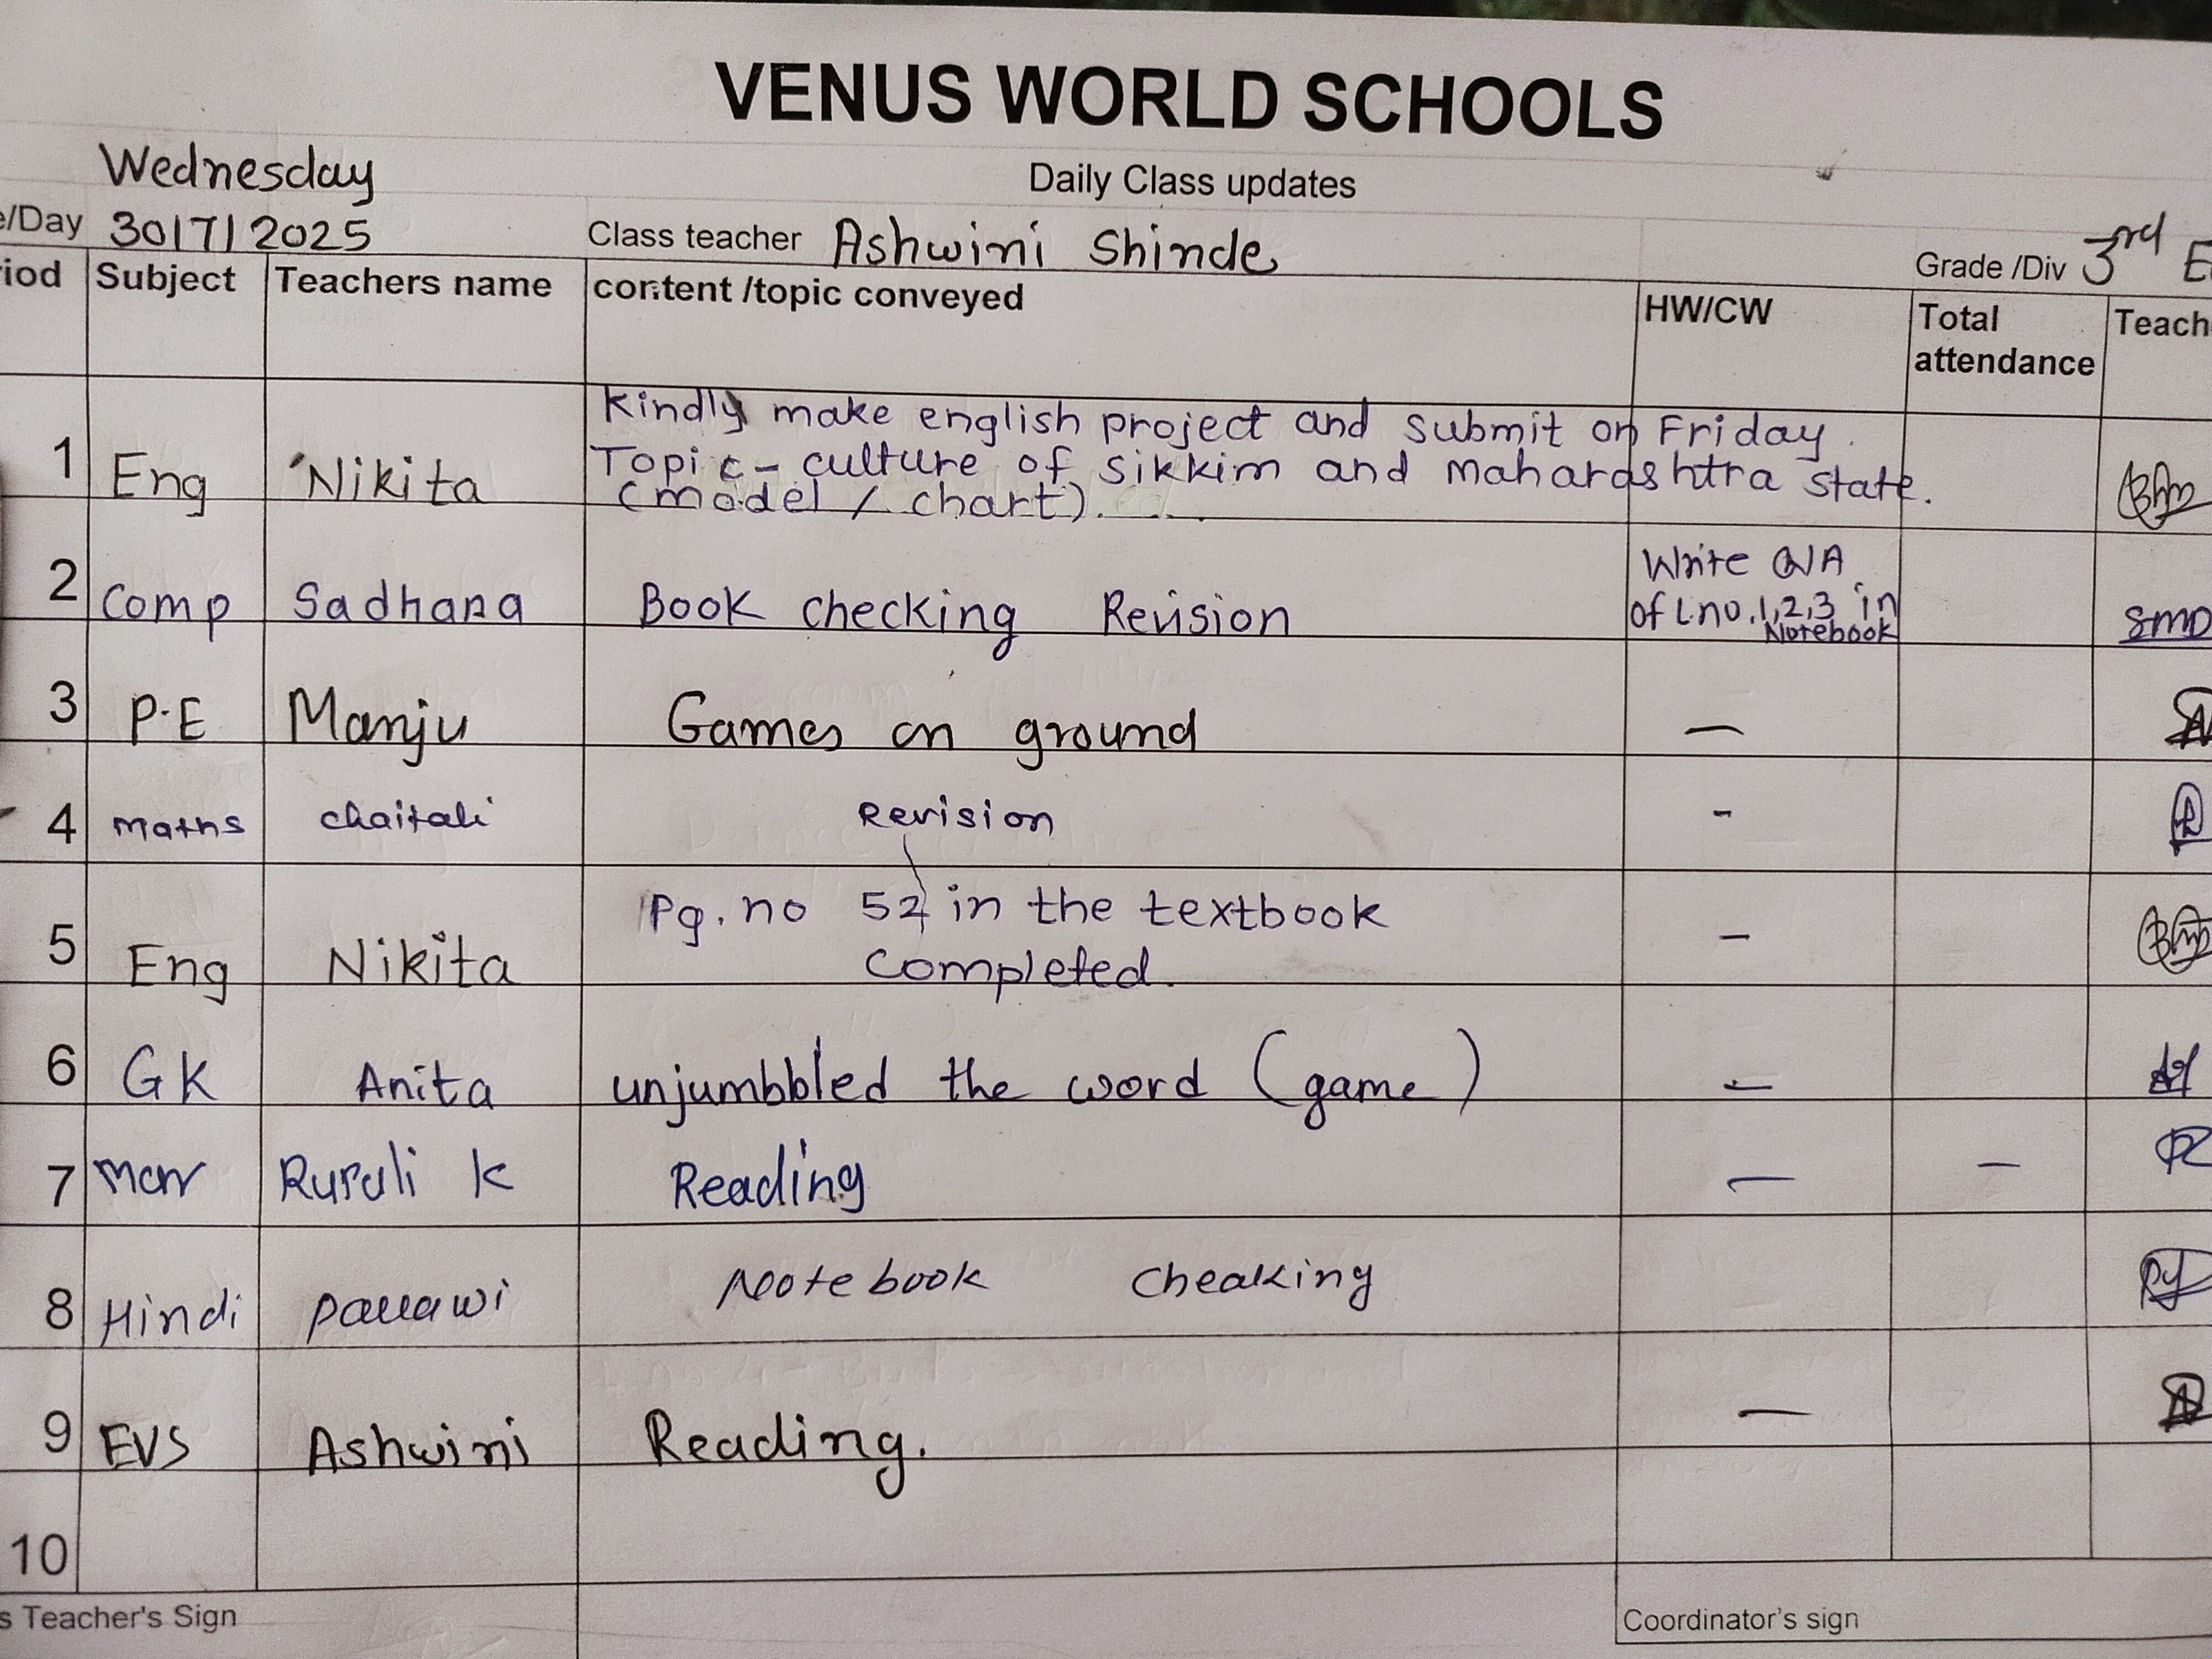 VENUS WORLD SCHOOLS
Daily Class updates
Wednesday
e/Day 30/7/2025 Class teacher Ashwini Shinde Grade /Div 3rd E
riod Subject Teachers name content /topic conveyed HW/CW Total attendance Teach
1 Eng Nikita Kindly make english project and submit on Friday.
Topic - culture of sikkim and maharashtra state.
(model / chart).
2 Comp Sadhana Book checking Revision Write Q/A
of L.no.1,2,3 in
Notebook
SMD
3 P.E Manju Games on ground —
4 maths chaitali Revision -
5 Eng Nikita Pg. no 52 in the textbook —
Completed.
6 GK Anita unjumbbled the word (game) —
7 Mar Rupali K Reading — —
8 Hindi Pallawi Notebook Cheaking
9 EVS Ashwini Reading. —
10
s Teacher's Sign Coordinator's sign